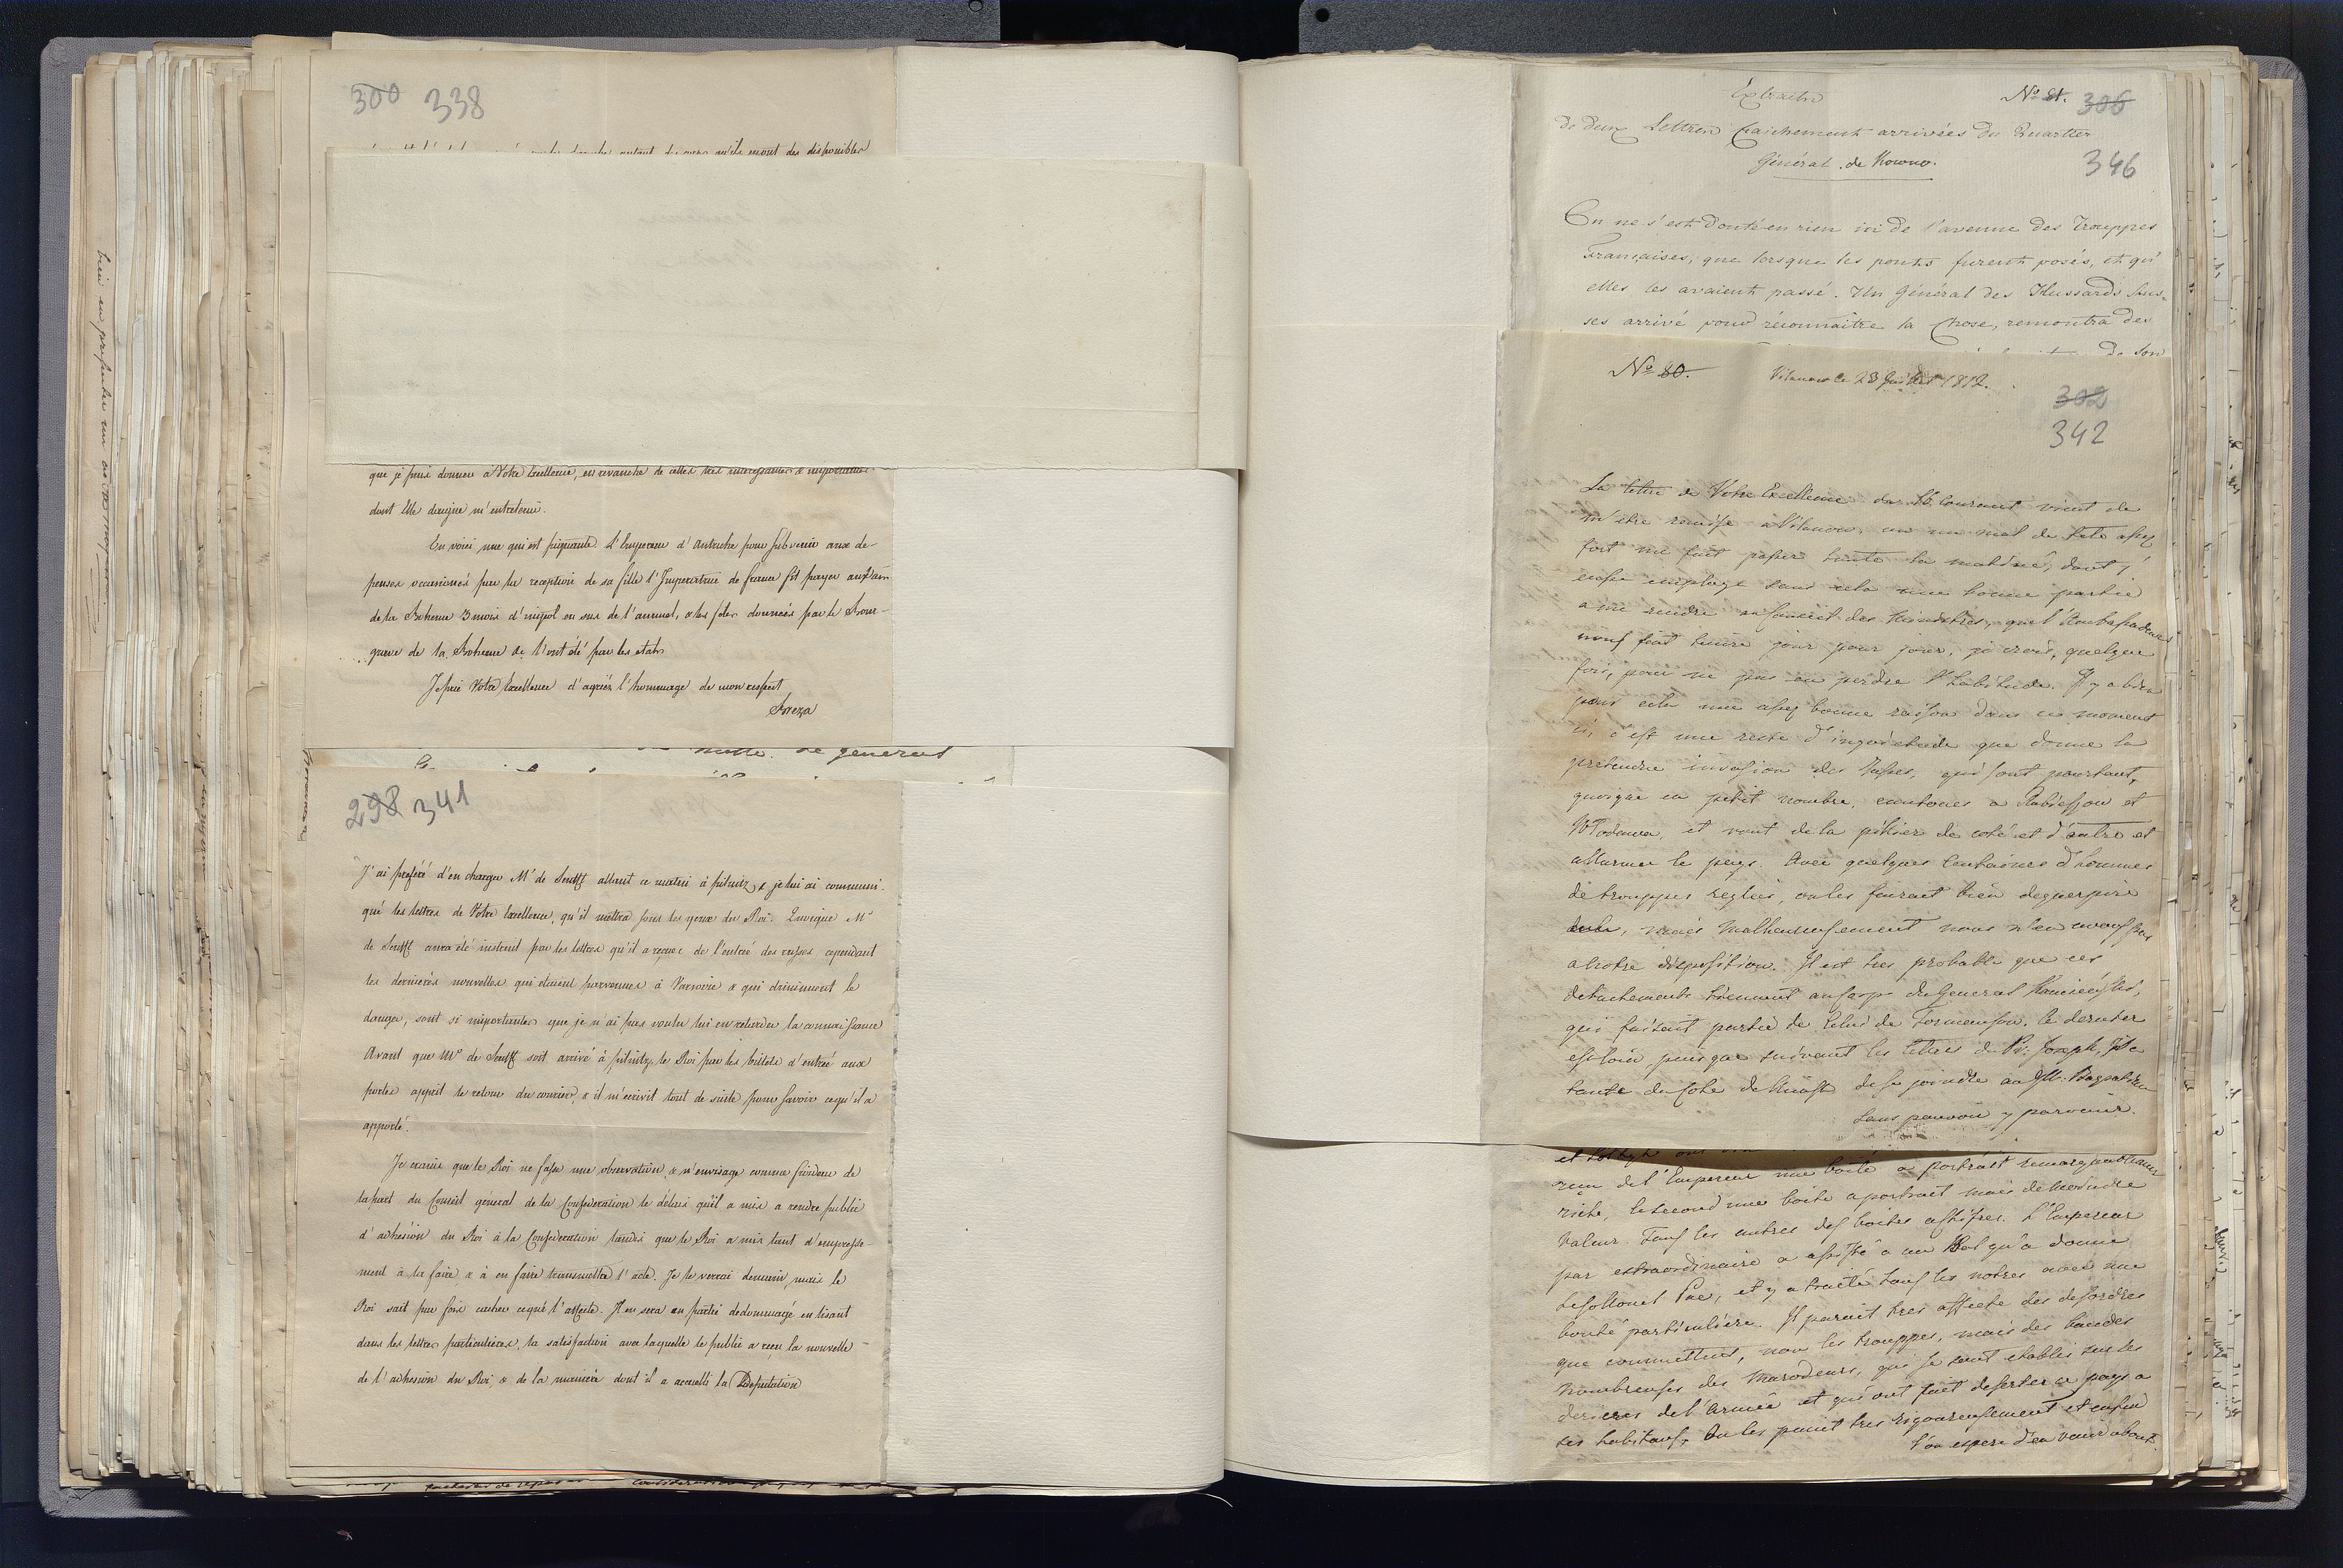 300 338
disponibles
que je puis donner à Votre Excellence, en revanche de celles très interessantes & importantes
dont Elle daigne m'entretenir.
En voici une qui est piquante. L'Empereur d'Autriche pour subvenir aux de-
penses occasionnés par la reception de sa fille l'Imperatrice de france fit payer
de la Boheme 3 mois d'impot en sus de l'annuel, & les fetes données par le Bour-
grave de la Boheme l'ont été par les etats
Je prie Votre Excellence d'agréer l'hommage de mon respect
Breza
le general
298 341
J'ai preferé d'en charger Mr de Senfft allant ce matin à pilnitz & je lui ai communi-
qué les lettres de Votre Excellence, qu'il mettra sous les yeux du Roi. Quoique Mr
de Senfft aura été instruit par les lettres qu'il a reçues de l'entrée des russes cependant
les dernières nouvelles qui étaient parvenues à Varsovie & qui diminuent le
danger, sont si importantes que je n'ai pas voulu lui en retarder la connaissance
Avant que Mr de Senfft soit arrivé à pilnitz, le Roi par les billets d'entrée aux
portes apprit le retour du courier, & il m'ecrivit tout de suite pour savoir ce qu'il a
apporté.
Je crains que le Roi ne fasse une observation & n'envisage comme froideur de
la part du Conseil général de la Confederation le délais qu'il a mis a rendre public
d'adhésion du Roi à la Confederation tandis que le Roi a mis tant d'empresse-
ment à la faire, & à en faire transmettre l'acte. Je le verrai demain, mais le
Roi sait par fois cacher ce qui l'affecte. Il en sera en partie dedommagé en lisant
dans les lettres particulières, la satisfaction avec laquelle le public a reçu la nouvelle
de l'adhesion du Roi, & de la manière dont il a accueilli la Deputation
Extraits
No 81. 306
de deux Lettres fraichement arrivées du Quartier
Général de Kowno.
346
On ne s'est douté en rien ici de l'avenue des Trouppes
Françaises, que lorsque les ponts furent posés, et qu'
elles les avaient passé. Un Général des Hussards Rus-
ses arrivé pour réconnaitre la chose, remontra des
de son
No 80. Vilanow le 23 Juillet 1812.
302
342
La lettre de Votre Excellence du courant vient de
m'etre remise a Vilanow, ou un mal de tete assez
fort me fait passer toute la matinée, dont j'
eusse employé sans cela une bonne partie
a me rendre au conseil des Ministres, que l'Ambassadeur
nous fait tenir jour pour jour, je crois, quelque
fois, pour ne pas en perdre l'habitude. Il y a bien
pour cela une assez bonne raison dans ce moment
ci, c'est une reste d'inquietude que donne la
pretendue invasion des Russes, qui sont pourtant,
quoique en petit nombre, cantonés a Rubieszow et
Wlodawa, et vont de la pillier de coté et d'autre et
allarmer le pays. Avec quelques Centaines d'hommes
de trouppes reglées, on les feroit bien deguerpire
mais Malheureusement nous n'en avons pas
a notre disposition. Il est tres probable que ces
detachements tiennent au corps du General Kamieński,
qui faisait partie de celui de Tormansow. Ce dernier
est loin puisque suivant les lettres du Pr: Joseph, Il a
tenté du coté de Minsk de se joindre au Gl. Bagration
sans pouvoir y parvenir.
reçu de l'Empereur une boite a portrait remarquablement
riche, le second une boite a portrait mais de moindre
valeur. Tous les autres des boites a chifres. L'Empereur
par extraordinaire a assisté a un Bal qu'a donné
le Collonel Pac, et y a traité tous les notres avec une
bonté particulière. Il parait tres affecté des desordres
que commettent, non les trouppes, mais des bandes
nombreuses des Marodeurs, qui se sont etablis sur les
derieres de l'Armée et qui ont fait deserter ce pays a
ses habitans. On les punit tres rigoureusement et enfin
l'on espere d'en venir about.